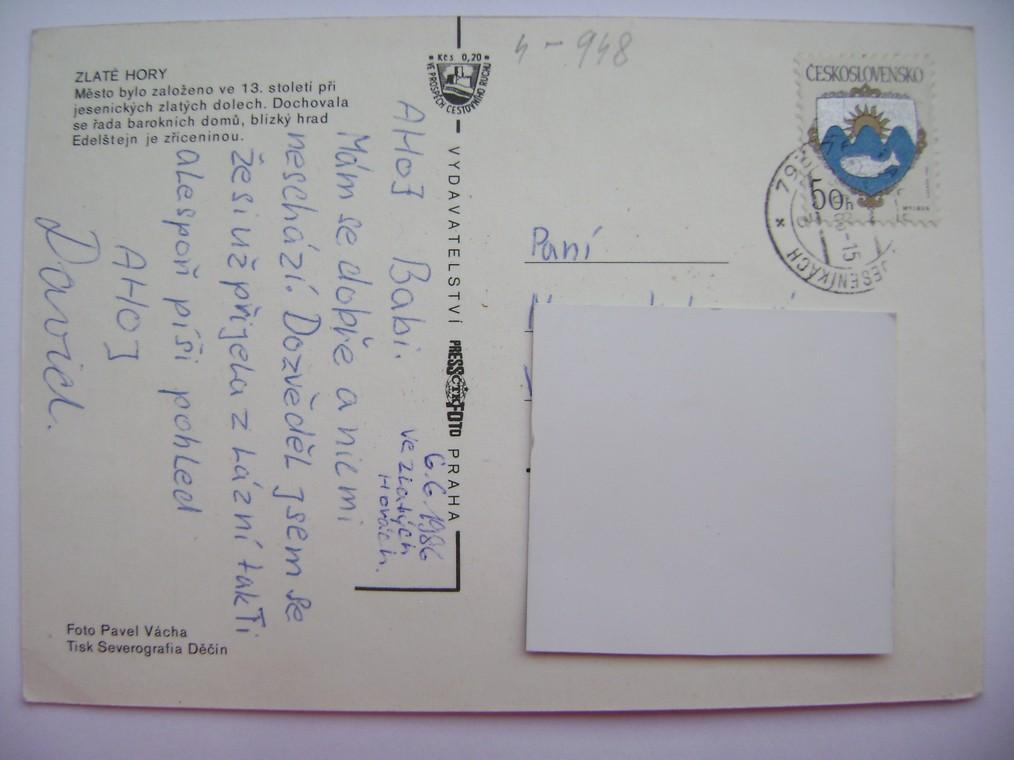 ZLATÉ HORY
Město bylo založeno ve 13. století při
jesenických zlatých dolech. Dochovala
se řada barokních domů, blízký hrad
Edelštejn je zříceninou.
6.6.1986
ve zlatých
Horách.
AHOJ Babi.
Mám se dobře a nic mi
neschází. Dozvěděl jsem se
že si už přijela z Lázní tak Ti
alespoň píši pohled
AHOJ
David.
Foto Pavel Vácha
Tisk Severografia Děčín
Kčs 0,20
VE PROSPĚCH CESTOVNÍHO RUCHU
VYDAVATELSTVÍ PRESSFOTO PRAHA
ČTK
4-948
ČESKOSLOVENSKO
50h
JESENÍKÁCH
-15
Paní